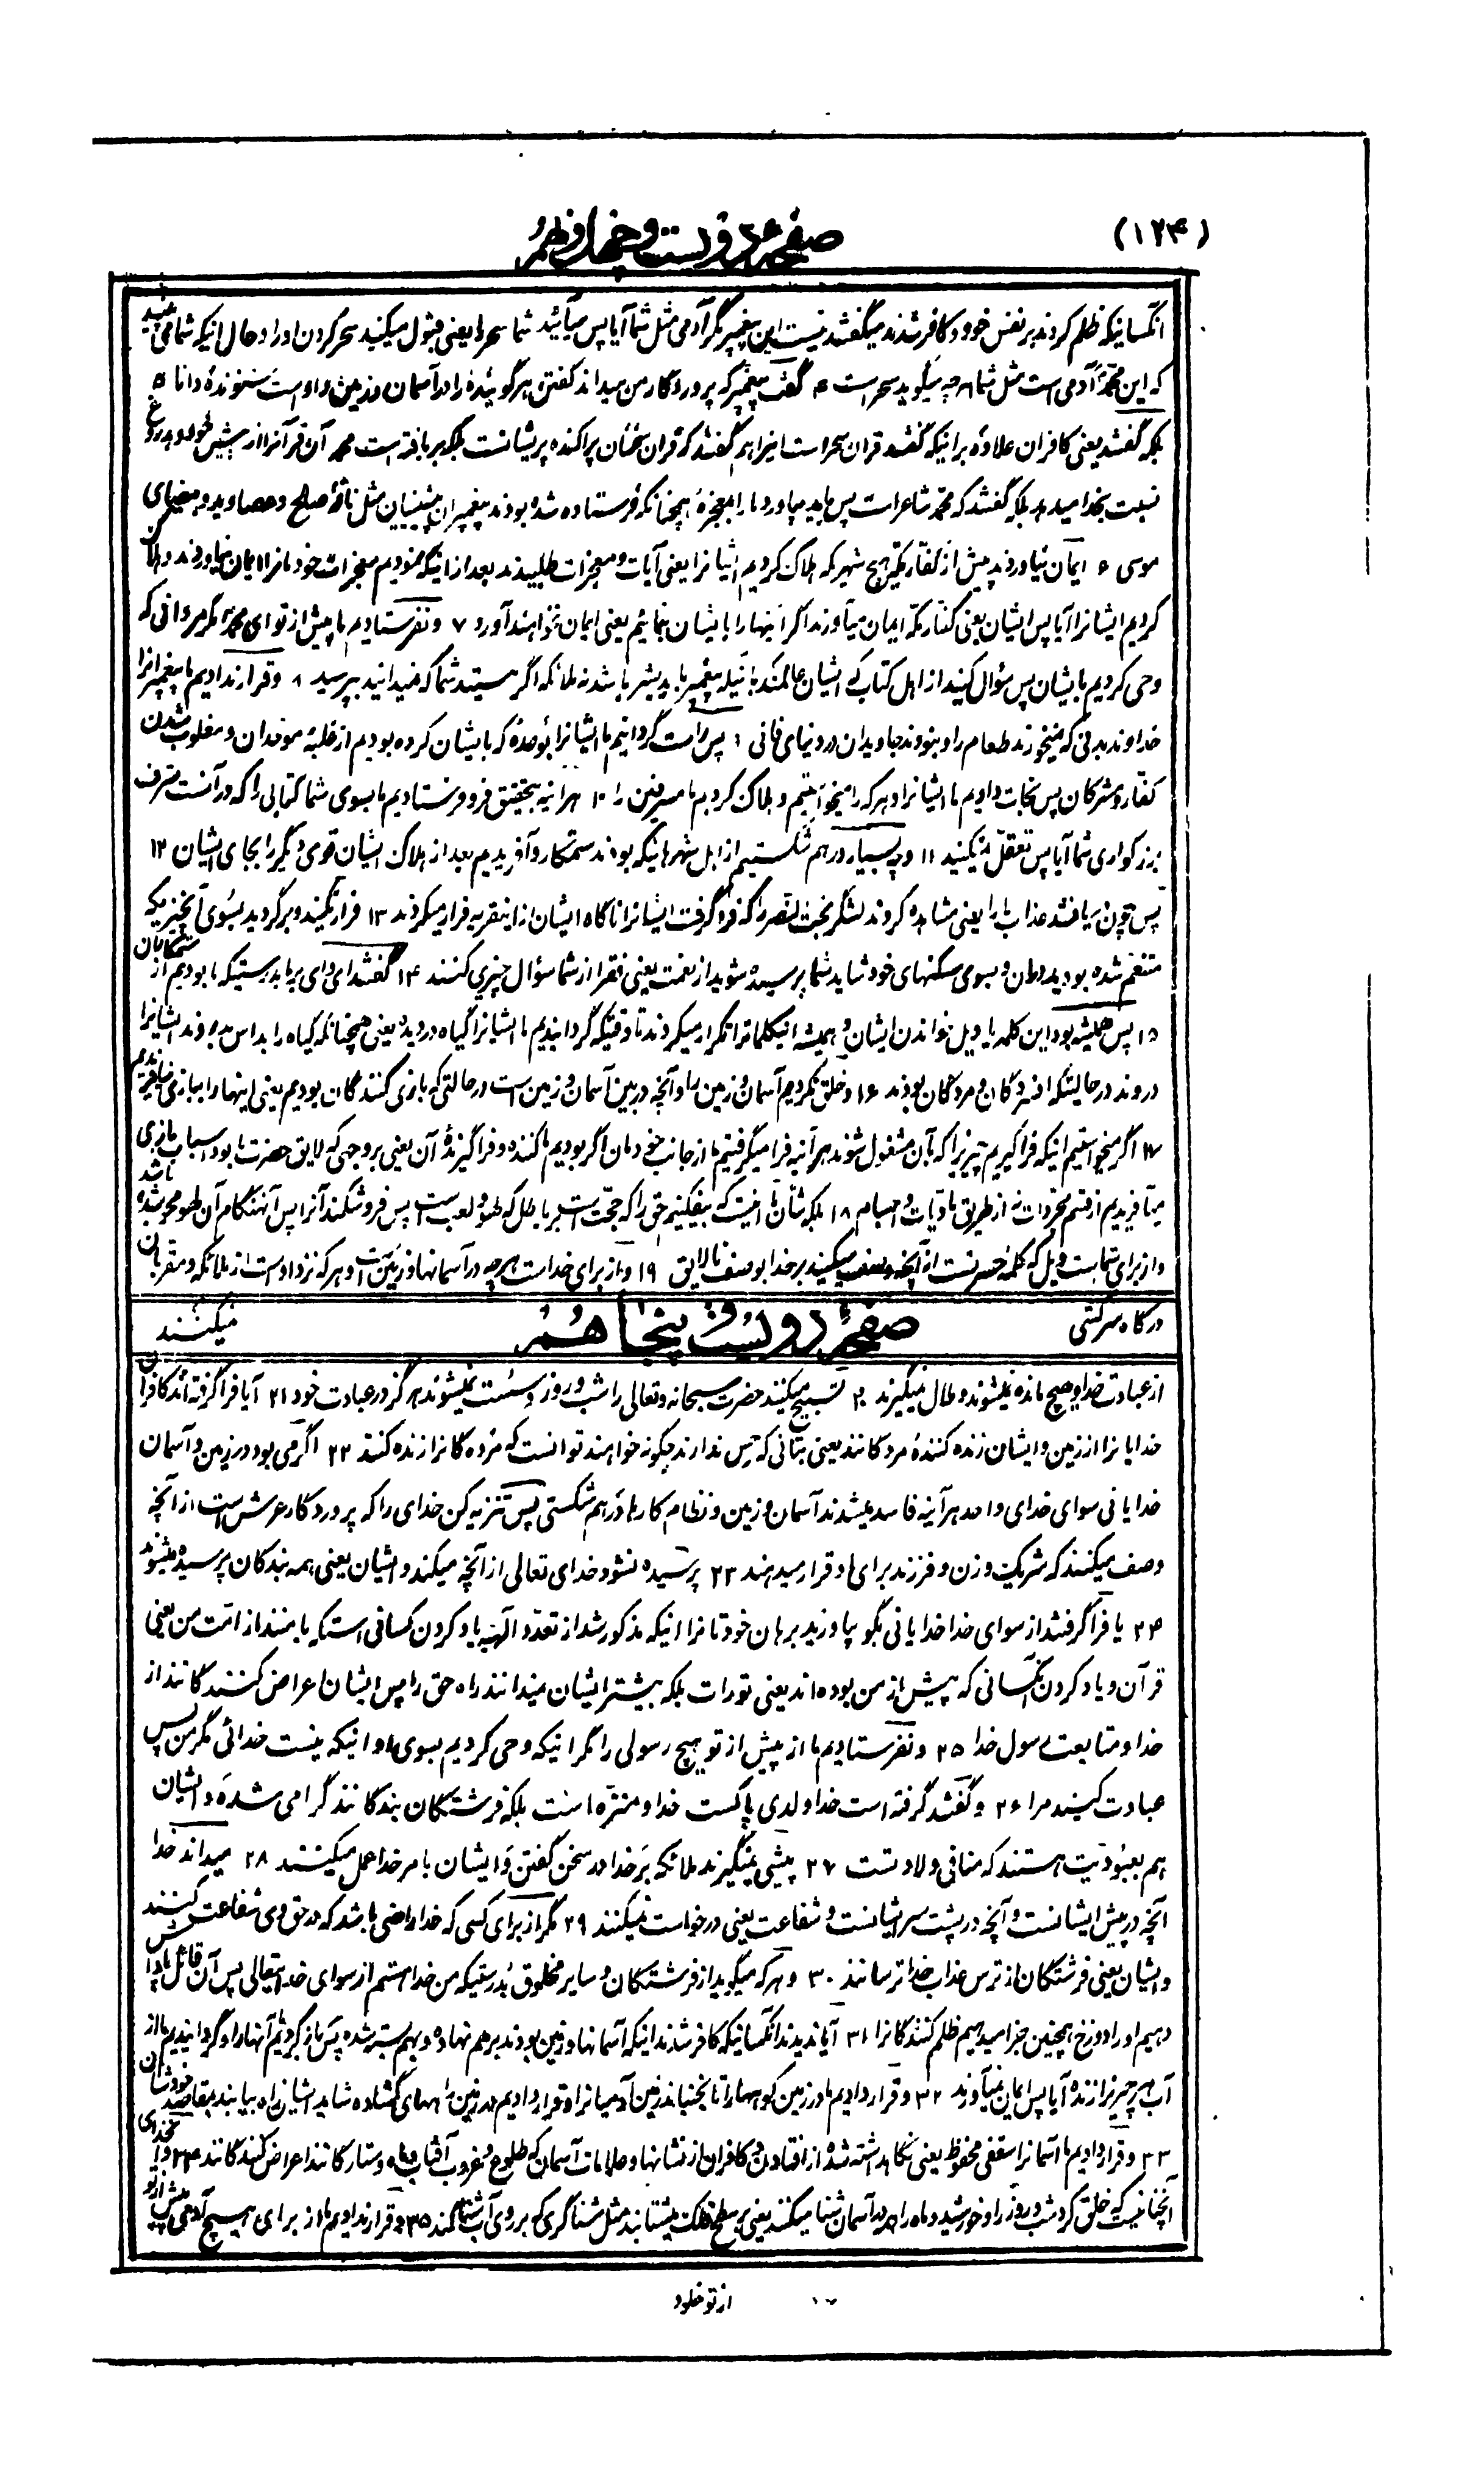 (۱۲۴)
صفحهٔ دویست و چهل و نهم
آنکسانیکه ظلم کردند بر نفس خود و کافر شدند میگفتند نیست این پیغمبر مگر آدمی مثل شما آیا پس میآئید شما سحر را یعنی قبول میکنید سحر کردن او را و حال آنیکه شما می بینید
که این محمد آدمی است مثل شما هر چه میگوید سحر است ۴ گفت پیغمبر که پروردگار من میداند گفتن هر گوینده را در آسمان و زمین و او است شنونده دانا ۵
بلکه گفتند یعنی کافران علاوه بر اینکه گفتند قران سحر است اینرا هم گفتند که قران سخنان پراکنده پریشانست بلکه بر بافته است محمد آن قرآنرا از پیش خود و بدروغ
نسبت بخدا میدهد بلکه گفتند که محمد شاعر است پس باید بیاورد ما را معجزهٔ همچنانکه فرستاده شده بودند پیغمبران پیشینیان مثل ناقهٔ صالح و عصا و ید و بیضای
موسی ۶ ایمان نیاوردند پیش از کفار مکه هیچ شهر که هلاک کردیم ایشانرا یعنی آیات و معجزات طلبیدند بعد از اینکه نمودیم معجزات خودمانرا ایمان نیاوردند و هلاک
کردیم ایشانرا آیا پس ایشان یعنی کفار مکه ایمان میآورند اگر اینها را بایشان بنمائیم یعنی ایمان نخواهند آورد ۷ و نفرستادیم ما پیش از تو ای محمد مگر مردانی که
وحی کردیم بایشان پس سؤال کنید از اهل کتاب که ایشان عالمند باینکه پیغمبر باید بشر باشد نه ملائکه اگر هستید شما که نمیدانید بپرسید ۸ و قرار ندادیم ما پیغمبرانرا
خداوند بدنی که نخورند طعام را و نبودند جاویدان در دنیای فانی ۹ پس راست گردانیدیم ما ایشانرا بوعدهٔ که بایشان کرده بودیم از غلبهٔ موحدان و مغلوب شدن
کفار و مشرکان پس نجات دادیم ما ایشانرا و هر که را میخواستیم و هلاک کردیم ما مسرفین را ۱۰ هر آینه بتحقیق فرو فرستادیم ما بسوی شما کتابی را که در آنست شرف
بزرگواری شما آیا پس تعقل نمیکنید ۱۱ و چه بسیار در هم شکستیم از اهل شهرهائیکه بودند ستمکار و آفریدیم بعد از هلاک ایشان قوی دیگر را بجای ایشان ۱۲
پس چون یافتند عذاب ما را یعنی مشاهده کردند لشکر بخت النصر را که فرو گرفت ایشانرا ناگاه ایشان از این قریه فرار میکردند ۱۳ فرار نکنید و برگردید بسوی آنچیزیکه
متنعم شده بودید در آن و بسوی مسکنهای خود شاید شما پرسیده شوید از نعمت یعنی فقرا از شما سؤال چیزی کنند ۱۴ گفتند ای وای بر ما بدرستیکه ما بودیم از ستمکاران
۱۵ پس همیشه بود این کلمه یا ویل خواندن ایشان و همیشه اینکلماترا تکرار میکردند تا وقتیکه گردانیدیم ما ایشانرا گیاه درویده یعنی همچنانکه گیاه را بداس میدروند ایشانرا
دروند در حالتیکه افسردگان و مردگان بودند ۱۶ و خلق نکردیم آسمان و زمین را و آنچه در بین آسمان و زمین است در حالتی که بازی کنندگان بودیم یعنی اینها را ببازی نیافریدیم
۱۷ اگر میخواستیم اینکه فرا گیریم چیزیرا که بآن مشغول شوند هر آینه فرا میگرفتیم ما از جانب خودمان اگر بودیم ما کننده و فرا گیرندهٔ آن یعنی بر وجهی که لایق حضرت ما بود اسباب بازی
میآفریدیم از قسم مجردات نه از طریق مادیات و اجسام ۱۸ بلکه شأن ما اینست که بیفکنیم حق را که حجت است بر باطل که لهو و لعب است پس فرو شکند آنرا پس آنهنگام آن لهو محو شده باشد
و از برای شما است ویل که کلمهٔ حسرتست از آنچه وصف میکنید بر خدا بوصف نالایق ۱۹ و از برای خداست هر چه در آسمانها و زمین است و هر که نزد اوست از ملائکه و مقربان
درگاه سرکشی نمیکنند
صفحهٔ دویست و پنجاهم
از عبادت خدا و هیچ مانده نمیشوند و ملال نمیگیرند ۲۰ تسبیح میکنند حضرت سبحانه و تعالی را شب و روز و سست نمیشوند هرگز در عبادت خود ۲۱ آیا فرا گرفته اند کافران
خدایانرا از زمین و ایشان زنده کنندهٔ مردگانند یعنی بتانی که حس ندارند چگونه خواهند توانست که مرده گانرا زنده کنند ۲۲ اگر می بود در زمین و آسمان
خدایانی سوای خدای واحد هر آینه فاسد میشدند آسمان و زمین و نظام کارها در هم شکستی پس تنزیه کن خدای را که پروردگار عرش است از آنچه
وصف میکنند که شریک و زن و فرزند برای او قرار میدهند ۲۳ پرسیده نشود خدای تعالی از آنچه میکند و ایشان یعنی همه بندگان پرسیده میشوند
۲۴ یا فرا گرفتند از سوای خدا خدایانی بگو بیاورید برهان خودتانرا اینکه مذکور شد از تعدد الهه یاد کردن کسانی استکه با منند از امت من یعنی
قرآن و یاد کردن آنکسانی که پیش از من بوده اند یعنی تورات بلکه بیشتر ایشان نمیدانند راه حق را پس ایشان اعراض کنندگانند از
خدا و متابعت رسول خدا ۲۵ و نفرستادیم ما از پیش از تو هیچ رسولی را مگر اینکه وحی کردیم بسوی او اینکه نیست خدائی مگر من پس
عبادت کنید مرا ۲۶ و گفتند گرفته است خدا ولدی پاکست خدا و منزه است بلکه فرشتگان بندگانند گرامی شده و ایشان
هم بعبودیت هستند که منافی ولادتست ۲۷ پیشی نمیگیرند ملائکه بر خدا در سخن گفتن و ایشان بامر خدا عمل میکنند ۲۸ میداند خدا
آنچه در پیش ایشانست و آنچه در پشت سر ایشانست و شفاعت یعنی درخواست نمیکنند ۲۹ مگر از برای کسی که خدا راضی باشد که در حق وی شفاعت کنند
و ایشان یعنی فرشتگان از ترس عذاب خدا ترسانند ۳۰ و هر که میگوید از فرشتگان و سایر مخلوق بدرستیکه من خدا هستم از سوای خدایتعالی پس آن قائل را پاداش
دهیم او را دوزخ همچنین جزا میدهیم ظلم کنندگانرا ۳۱ آیا ندیدند آنکسانیکه کافر شدند اینکه آسمانها و زمین بودند بر هم نهاده و بهم بسته شده پس باز کردیم آنها را و گردانیدیم ما از
آب هر چیز را زنده آیا پس ایمان نمیآورند ۳۲ و قرار دادیم ما در زمین کوهها را تا نجنباند زمین آدمیانرا و قرار دادیم در زمین راههای گشاده شاید ایشان راه بیابند بمقاصد خودشان
۳۳ و قرار دادیم ما آسمانرا سقفی محفوظ یعنی نگاهداشته شده از افتادن و کافران از نشانها و علامات آسمان که طلوع و غروب آفتاب و ماه و ستارگانند اعراض کنندگانند ۳۴ و خدای
آنچنانیست که خلق کرد شب و روز را و خورشید و ماه را هر یک در آسمان شنا میکنند یعنی بر سطح فلک میشتابند مثل شناگری که بر روی آب شنا کند ۳۵ و قرار ندادیم ما از برای هیچ آدمی پیش از تو
از تو خلود